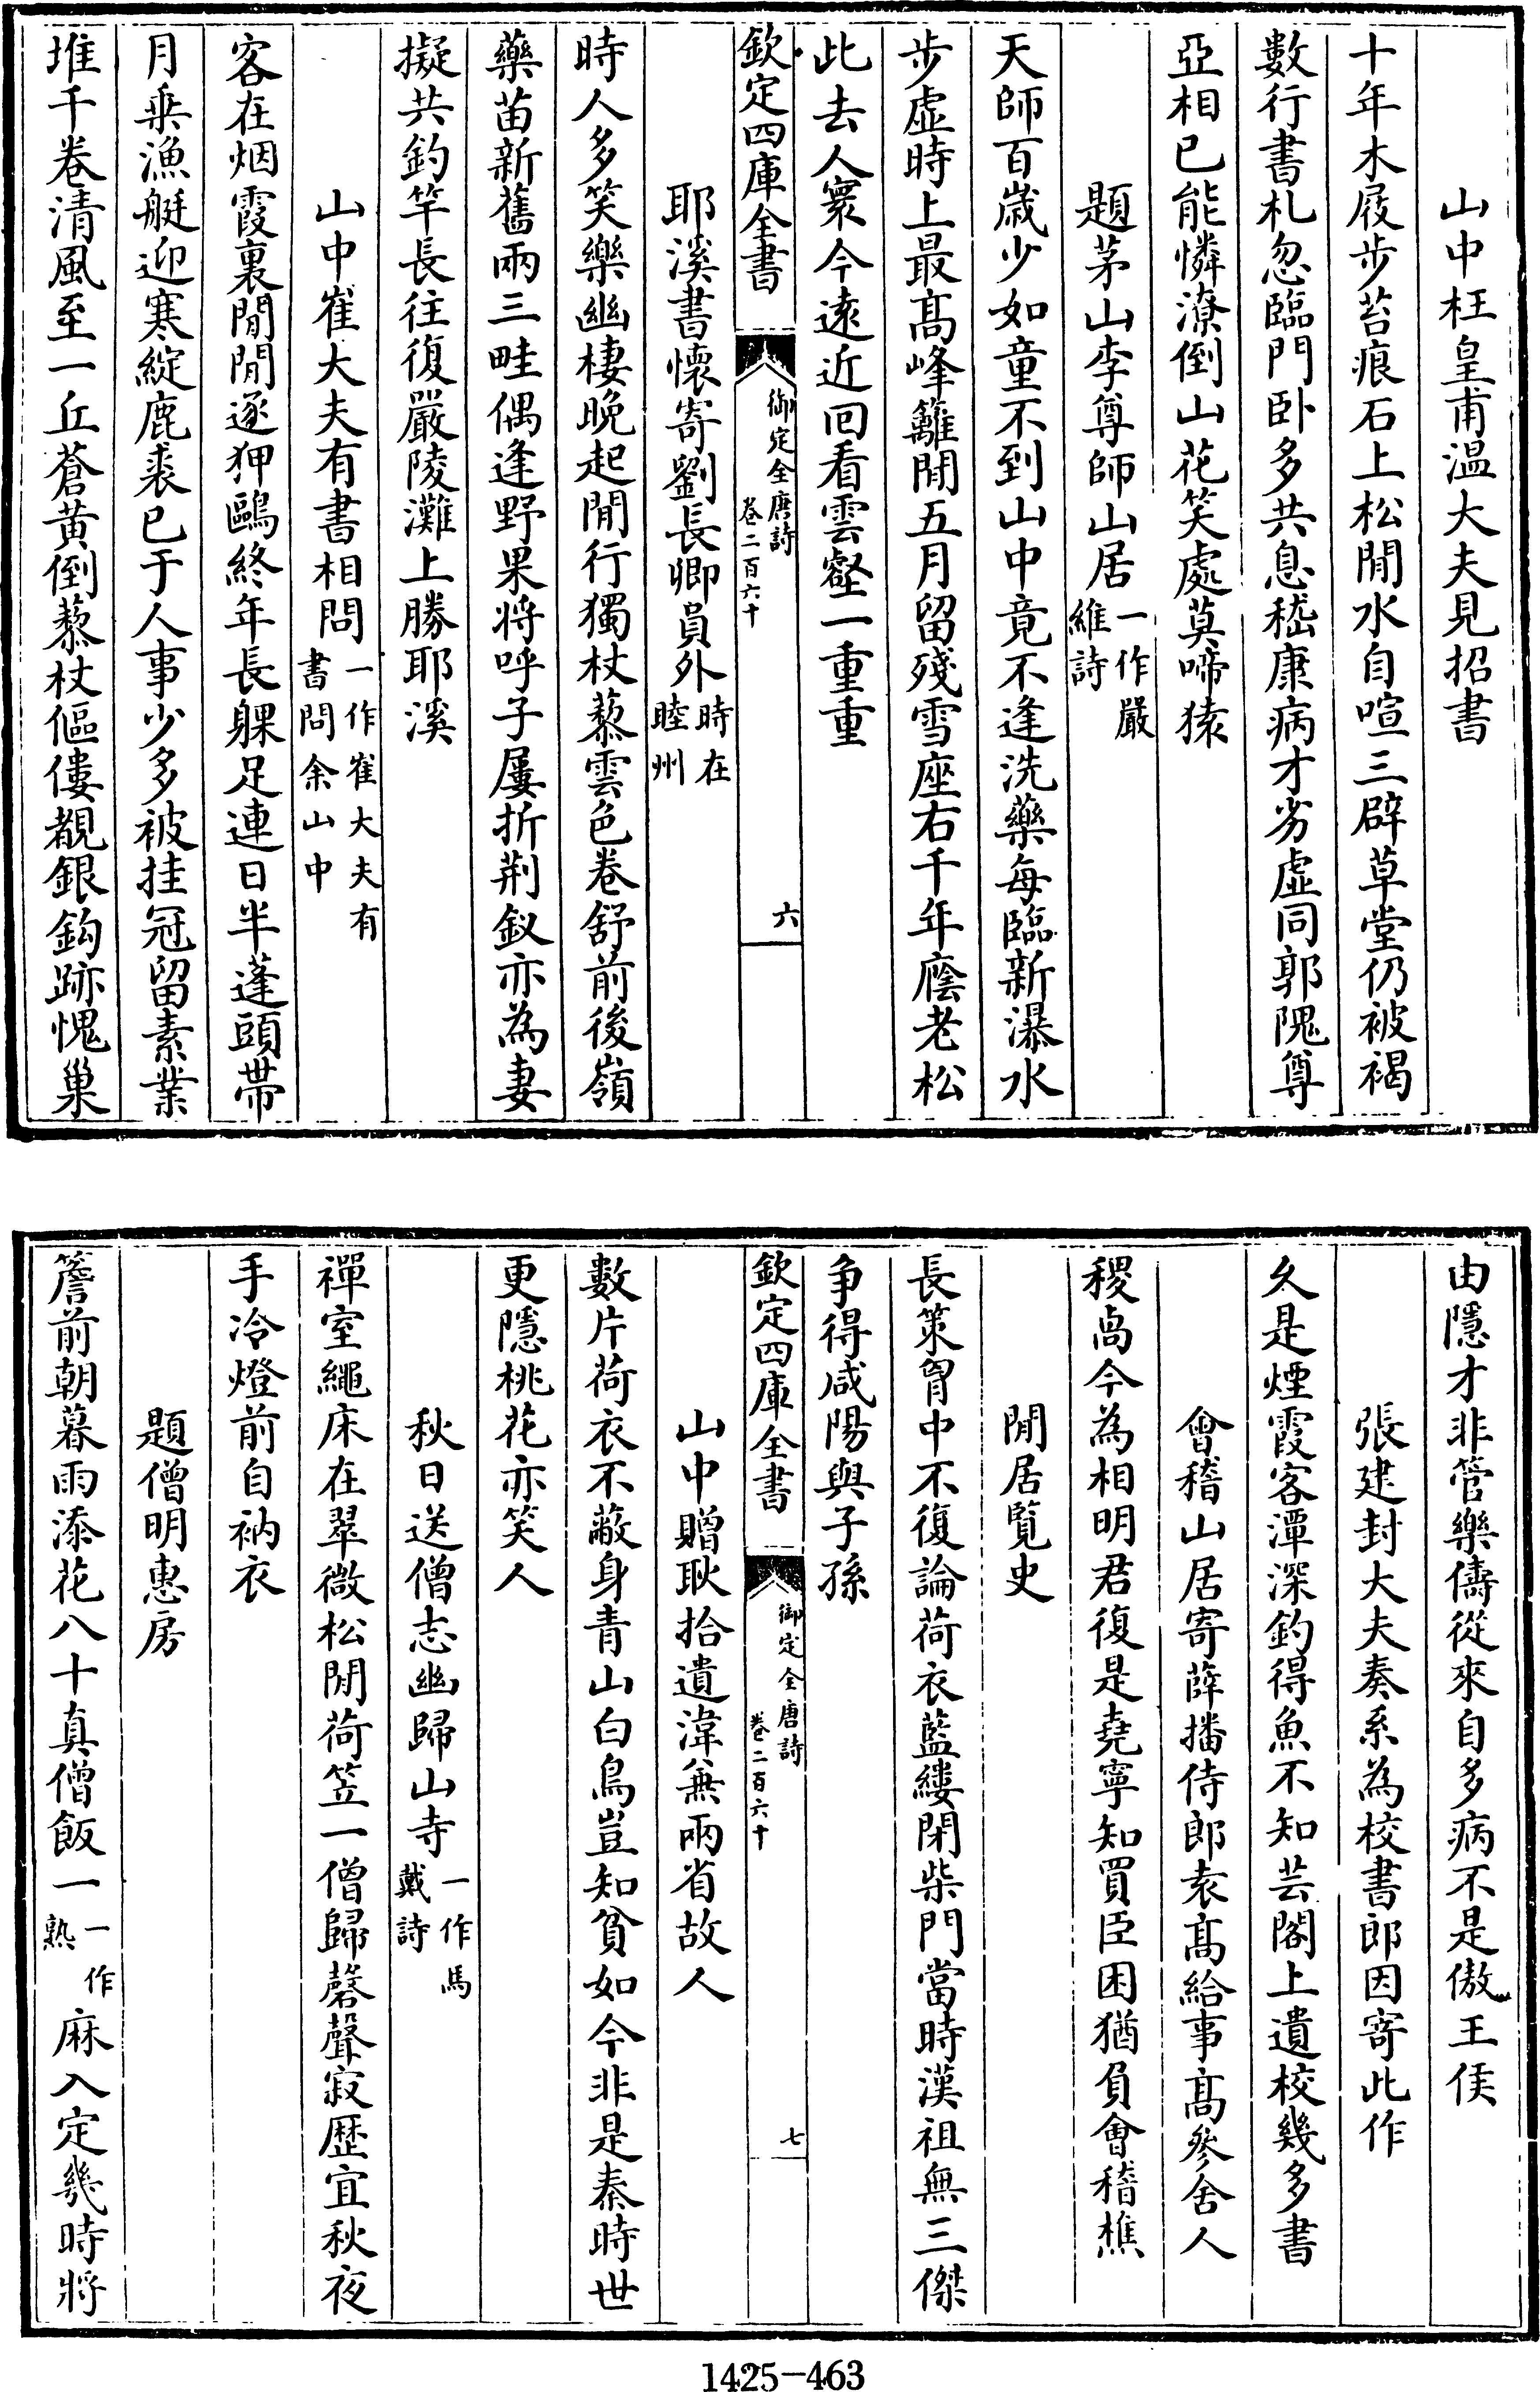 山中枉皇甫温大夫見招書
十年木屐步苔痕石上松間水自喧三辟草堂仍被褐
數行書札忽臨門卧多共息嵇康病才劣虚同郭隗尊
亞相已能憐潦倒山花笑處莫啼猿
題茅山李尊師山居一作嚴維詩
天師百歳少如童不到山中竟不逢洗藥每臨新瀑水
步虚時上最髙峰籬間五月留殘雪座右千年廕老松
此去人寰今遠近回看雲壑一重重
欽定四庫全書 御定全唐詩 卷二百六十 六
耶溪書懷寄劉長卿員外時在睦州
時人多笑樂幽棲晚起閒行獨杖藜雲色卷舒前後嶺
藥苗新舊兩三畦偶逢野果將呼子屢折荆釵亦為妻
擬共釣竿長往復嚴陵灘上勝耶溪
山中崔大夫有書相問一作崔大夫有書問余山中
客在烟霞裏閒閒逐狎鷗終年長躶足連日半蓬頭帶
月乗漁艇迎寒綻鹿裘已于人事少多被挂冠留素業
堆千卷清風至一丘蒼黄倒藜杖傴僂覩銀鈎跡愧巢
由隱才非管樂儔從來自多病不是傲王侯
張建封大夫奏系為校書郎因寄此作
久是煙霞客潭深釣得魚不知芸閣上遺校幾多書
會稽山居寄薛播侍郎袁髙給事髙參舍人
稷卨今為相明君復是堯寧知買臣困猶負會稽樵
閒居覧史
長策胷中不復論荷衣藍縷閉柴門當時漢祖無三傑
争得咸陽與子孫
欽定四庫全書 御定全唐詩 卷二百六十 七
山中贈耿拾遺湋兼兩省故人
數片荷衣不蔽身青山白鳥豈知貧如今非是秦時世
更隱桃花亦笑人
秋日送僧志幽歸山寺一作馬戴詩
禪室繩床在翠微松間荷笠一僧歸磬聲寂歴宜秋夜
手冷燈前自衲衣
題僧明惠房
簷前朝暮雨添花八十真僧飯一一作熟麻入定幾時將
1425-463